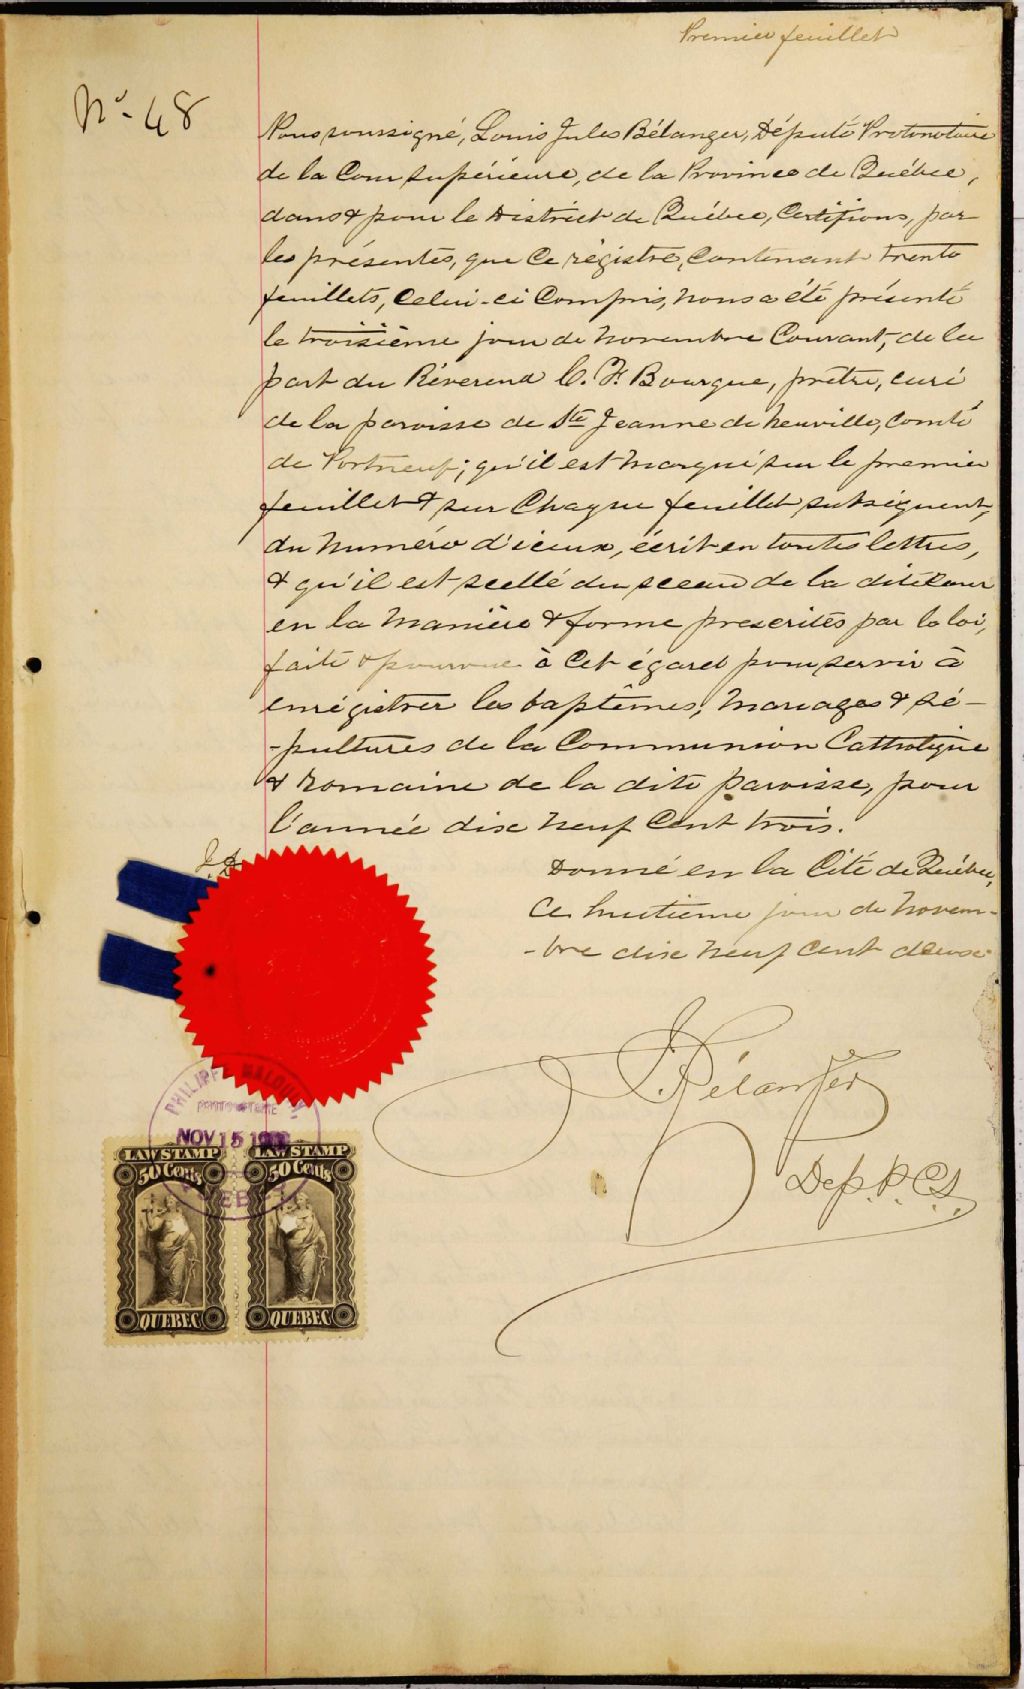 Premier feuillet
No. 48
Nous soussigné, Louis Jules Bélanger, Député Protonotaire
de la Cour supérieure, de la Province de Québec,
dans & pour le District de Québec, Certifions, par
les présentes, que Ce régistre, Contenant trente
feuillets, Celui-ci Compris, nous a été présenté
le troisième jour de Novembre Courant, de la
part du Réverend C. F. Bourque, prêtre, curé
de la paroisse de Ste Jeanne de Neuville, Comté
de Portneuf; qu'il est marqué sur le premier
feuillet & sur Chaque feuillet subséquent,
du Numéro d'iceux, écrit en toutes lettres,
& qu'il est scellé du sceau de la dite Cour
en la Manière & forme prescrites par la loi,
faite & pourvue à Cet égard pour servir à
enrégistrer les baptêmes, Mariages & sé-
-pultures de la Communion Catholique
& romaine de la dite paroisse, pour
l'année dix Neuf Cent trois.
Donné en la Cité de Québec,
Ce huitième jour de Novem-
-bre dix Neuf Cent deux.
J. Bélanger
Dep. P. C. S.
PHILIPPE MALOUIN
PROTONOTAIRE
NOV 15
LAW STAMP LAW STAMP
50 Cents 50 Cents
QUEBEC QUEBEC